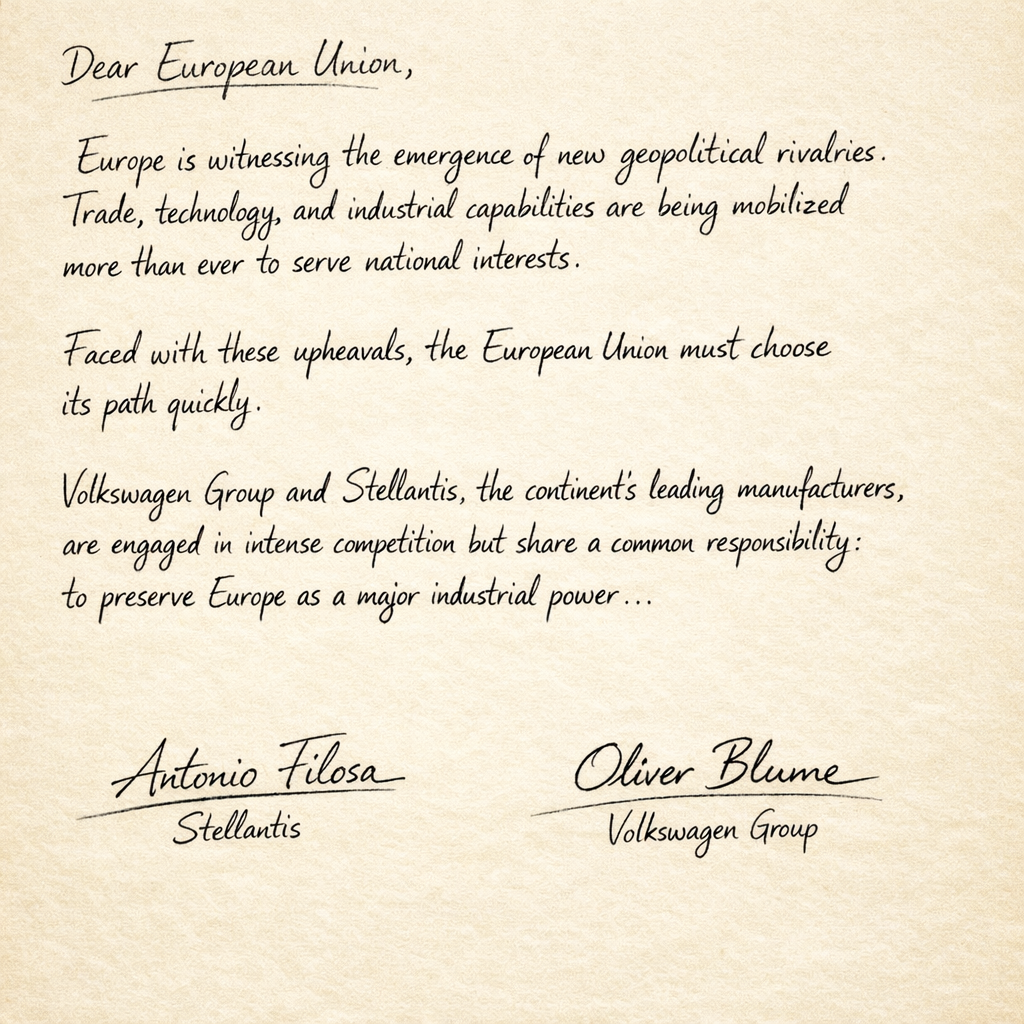 Dear European Union,
Europe is witnessing the emergence of new geopolitical rivalries.
Trade, technology, and industrial capabilities are being mobilized
more than ever to serve national interests.
Faced with these upheavals, the European Union must choose
its path quickly.
Volkswagen Group and Stellantis, the continent's leading manufacturers,
are engaged in intense competition but share a common responsibility:
to preserve Europe as a major industrial power...
Antonio Filosa
Stellantis
Oliver Blume
Volkswagen Group